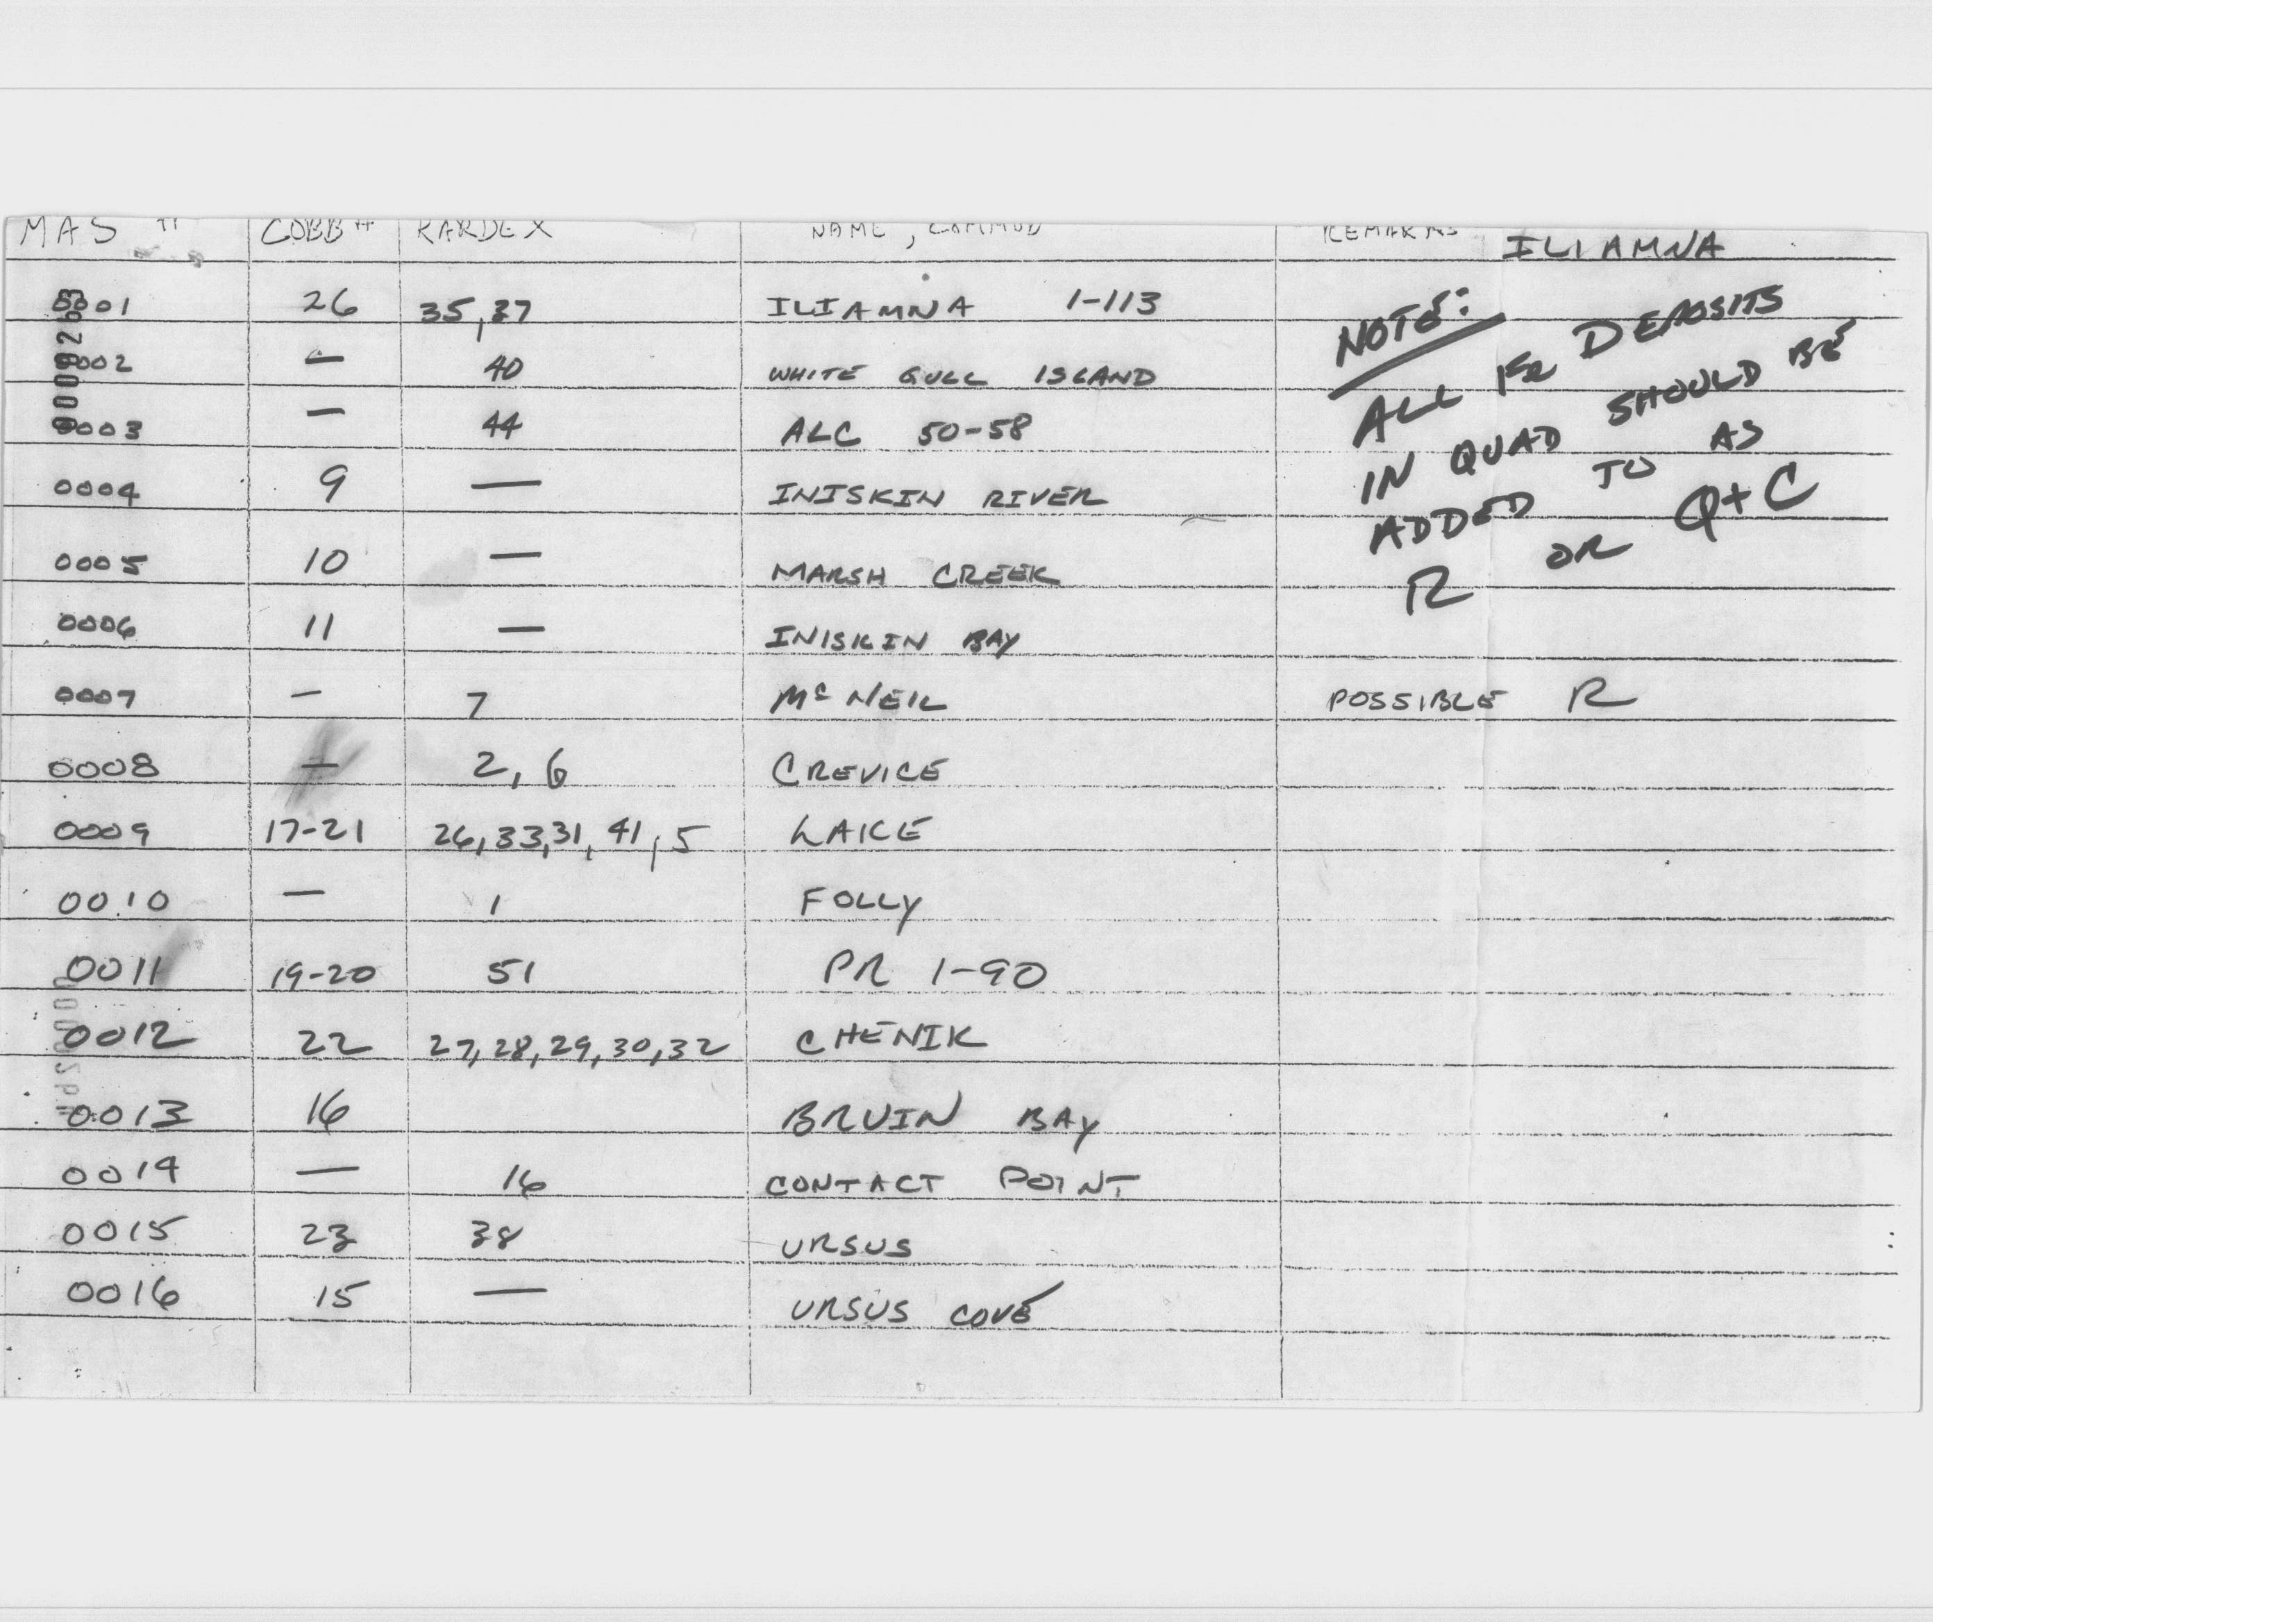 MAS # COBB# KARDEX NAME, COMMOD REMARKS ILIAMNA
0001 26 35,37 ILIAMNA 1-113
0002 — 40 WHITE GULL ISLAND
0003 — 44 ALC 50-58
0004 9 — INISKIN RIVER
0005 10 — MARSH CREEK
0006 11 — INISKIN BAY
0007 — 7 McNEIL POSSIBLE R
0008 — 2, 6 CREVICE
0009 17-21 26,33,31,41,5 LAKE
0010 — 1 FOLLY
0011 19-20 51 PR 1-90
0012 22 27,28,29,30,32 CHENIK
0013 16 BRUIN BAY
0014 — 16 CONTACT POINT
0015 23 38 URSUS
0016 15 — URSUS COVE
NOTE:
ALL DEPOSITS
IN QUAD SHOULD BE
ADDED TO AS
R OR Q+C